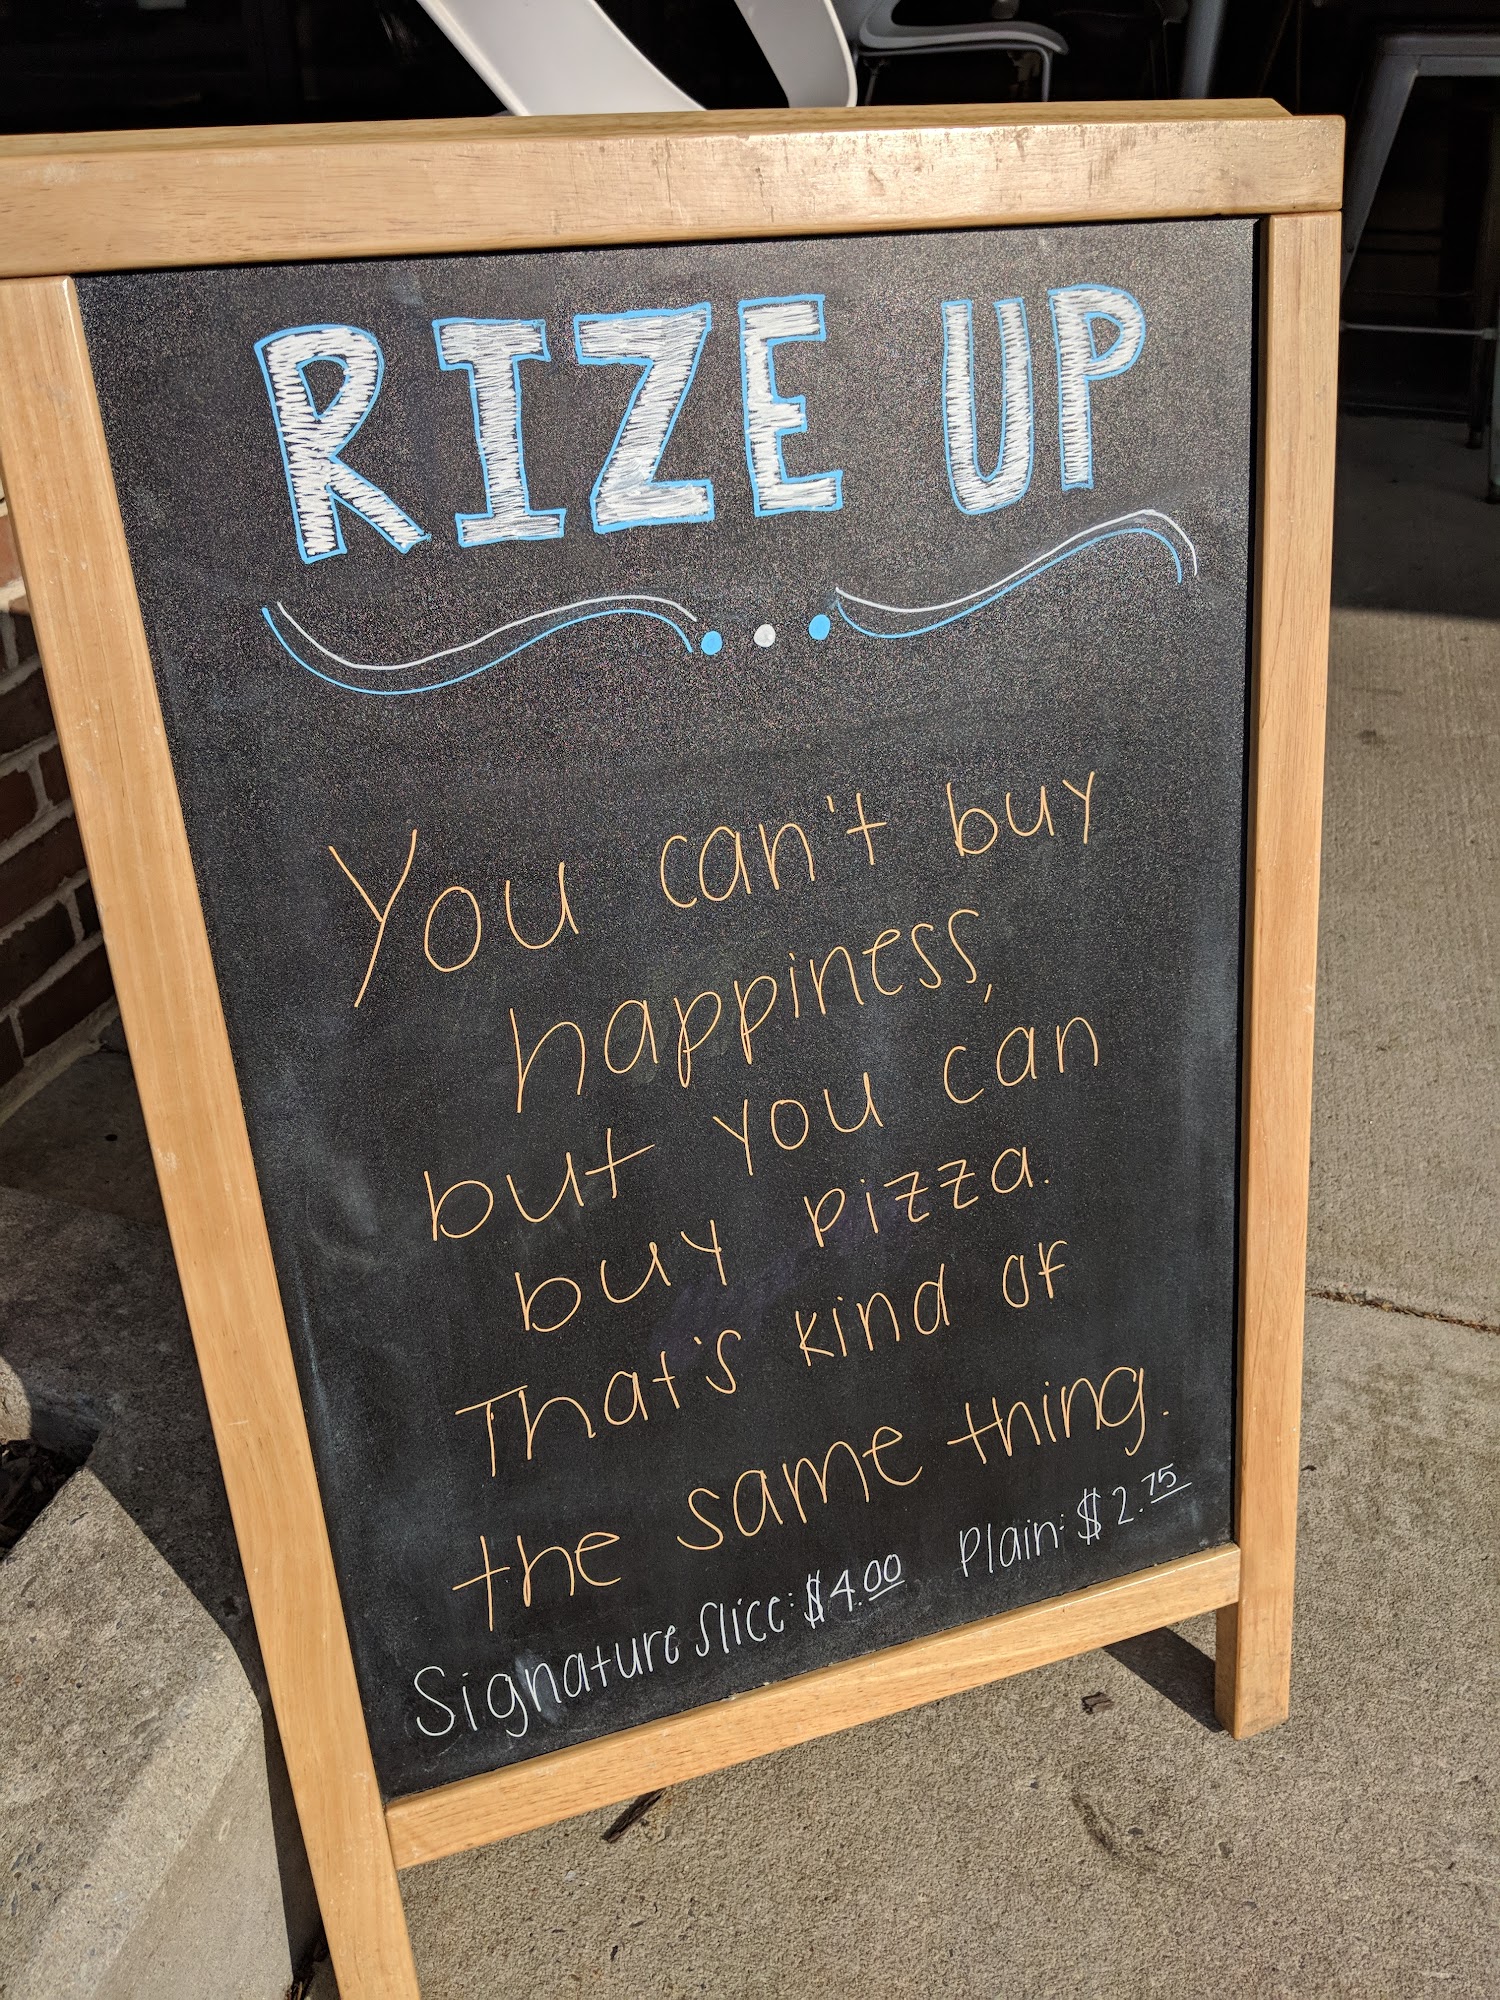 RIZE UP
You can't buy
happiness,
but you can
buy pizza.
That's kind of
the same thing.
Signature Slice: $4.00 Plain: $2.75